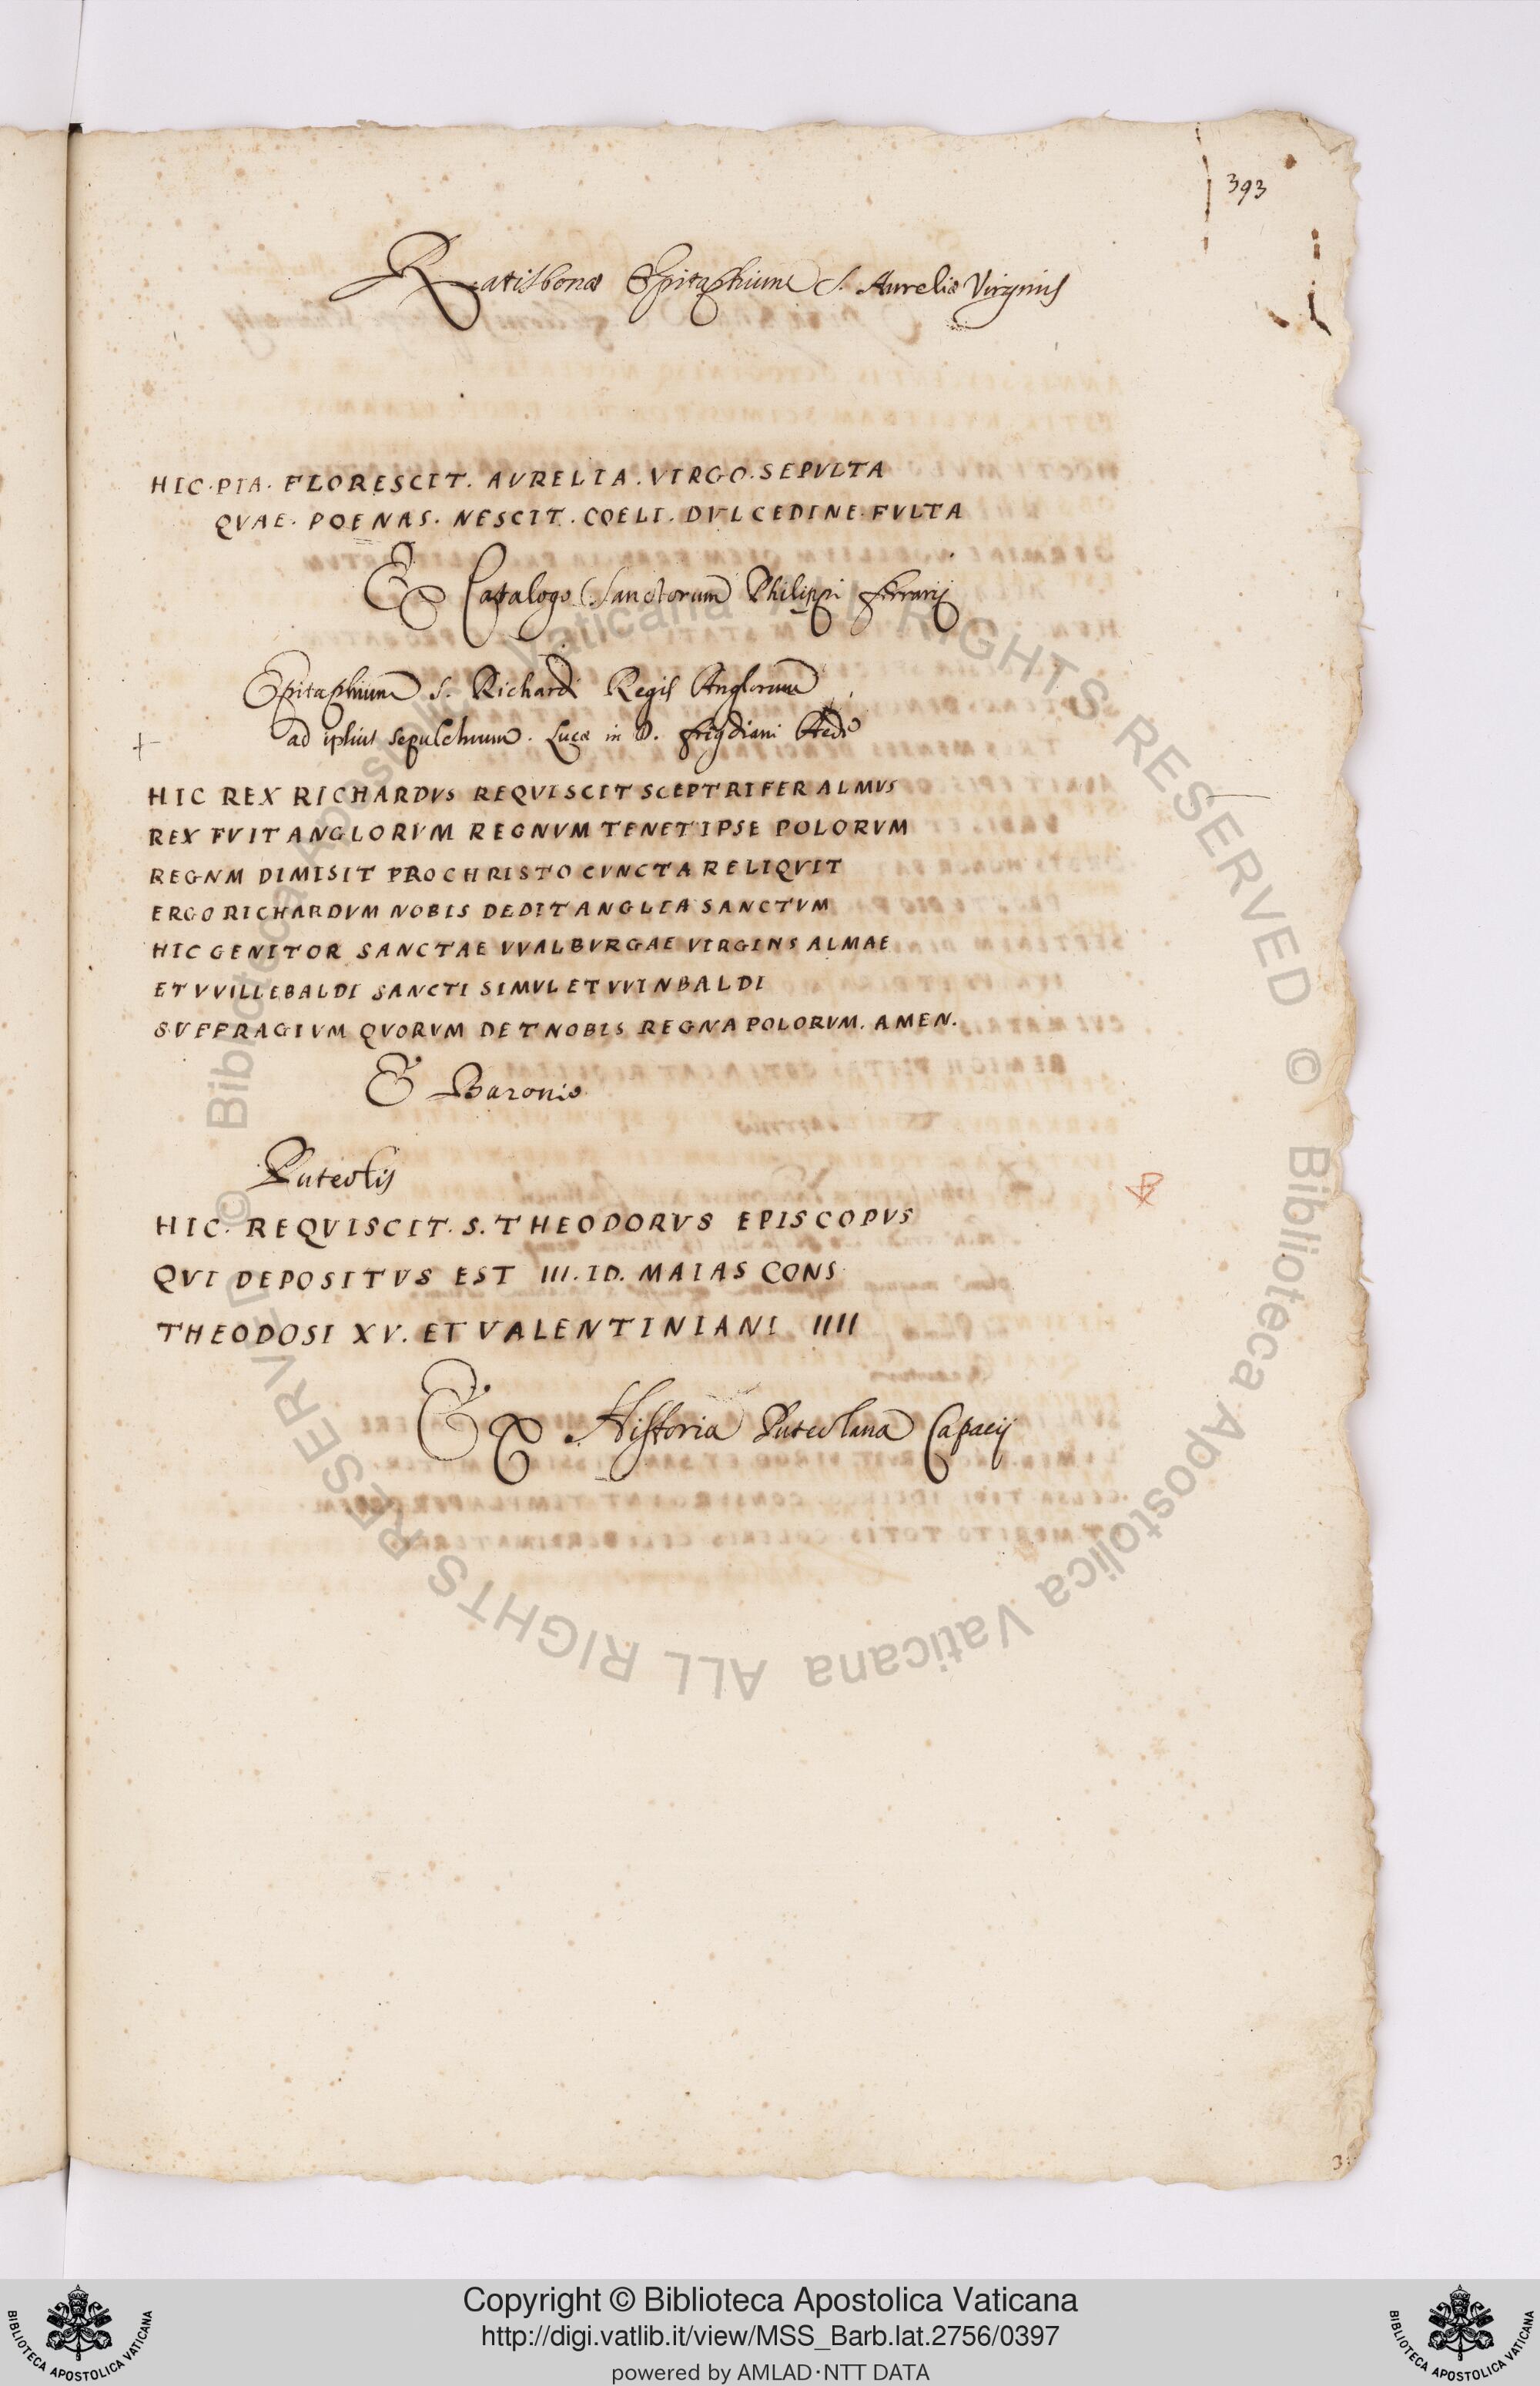 393
Ratisbonæ Epitaphium S. Aureliæ Virginis
HIC. PIA. FLORESCIT. AVRELIA. VIRGO. SEPVLTA
QVAE. POENAS. NESCIT. COELI. DVLCEDINE. FVLTA
Ex Catalogo Sanctorum Philippi Ferrarij
Epitaphium S. Richardi Regis Anglorum
ad ipsius sepulchrum. Lucæ in D. Frigdiani Æde
HIC REX RICHARDVS REQVISCIT SCEPTRIFER ALMVS
REX FVIT ANGLORVM REGNVM TENET IPSE POLORVM
REGNM DIMISIT PRO CHRISTO CVNCTA RELIQVIT
ERGO RICHARDVM NOBIS DEDIT ANGLIA SANCTVM
HIC GENITOR SANCTAE VVALBVRGAE VIRGINS ALMAE
ET VVILLEBALDI SANCTI SIMVL ET VVINBALDI
SVFFRAGIVM QVORVM DET NOBIS REGNA POLORVM. AMEN.
Baronio
Puteolis
HIC. REQVISCIT. S. THEODORVS EPISCOPVS
QVI DEPOSITVS EST III. ID. MAIAS CONS
THEODOSI XV. ET VALENTINIANI IIII
Ex Historia Puteolana Capacij
© Biblioteca Apostolica Vaticana ALL RIGHTS RESERVED © Biblioteca Apostolica Vaticana ALL RIGHTS RESERVED
Copyright © Biblioteca Apostolica Vaticana
http://digi.vatlib.it/view/MSS_Barb.lat.2756/0397
powered by AMLAD·NTT DATA
BIBLIOTECA APOSTOLICA VATICANA
BIBLIOTECA APOSTOLICA VATICANA